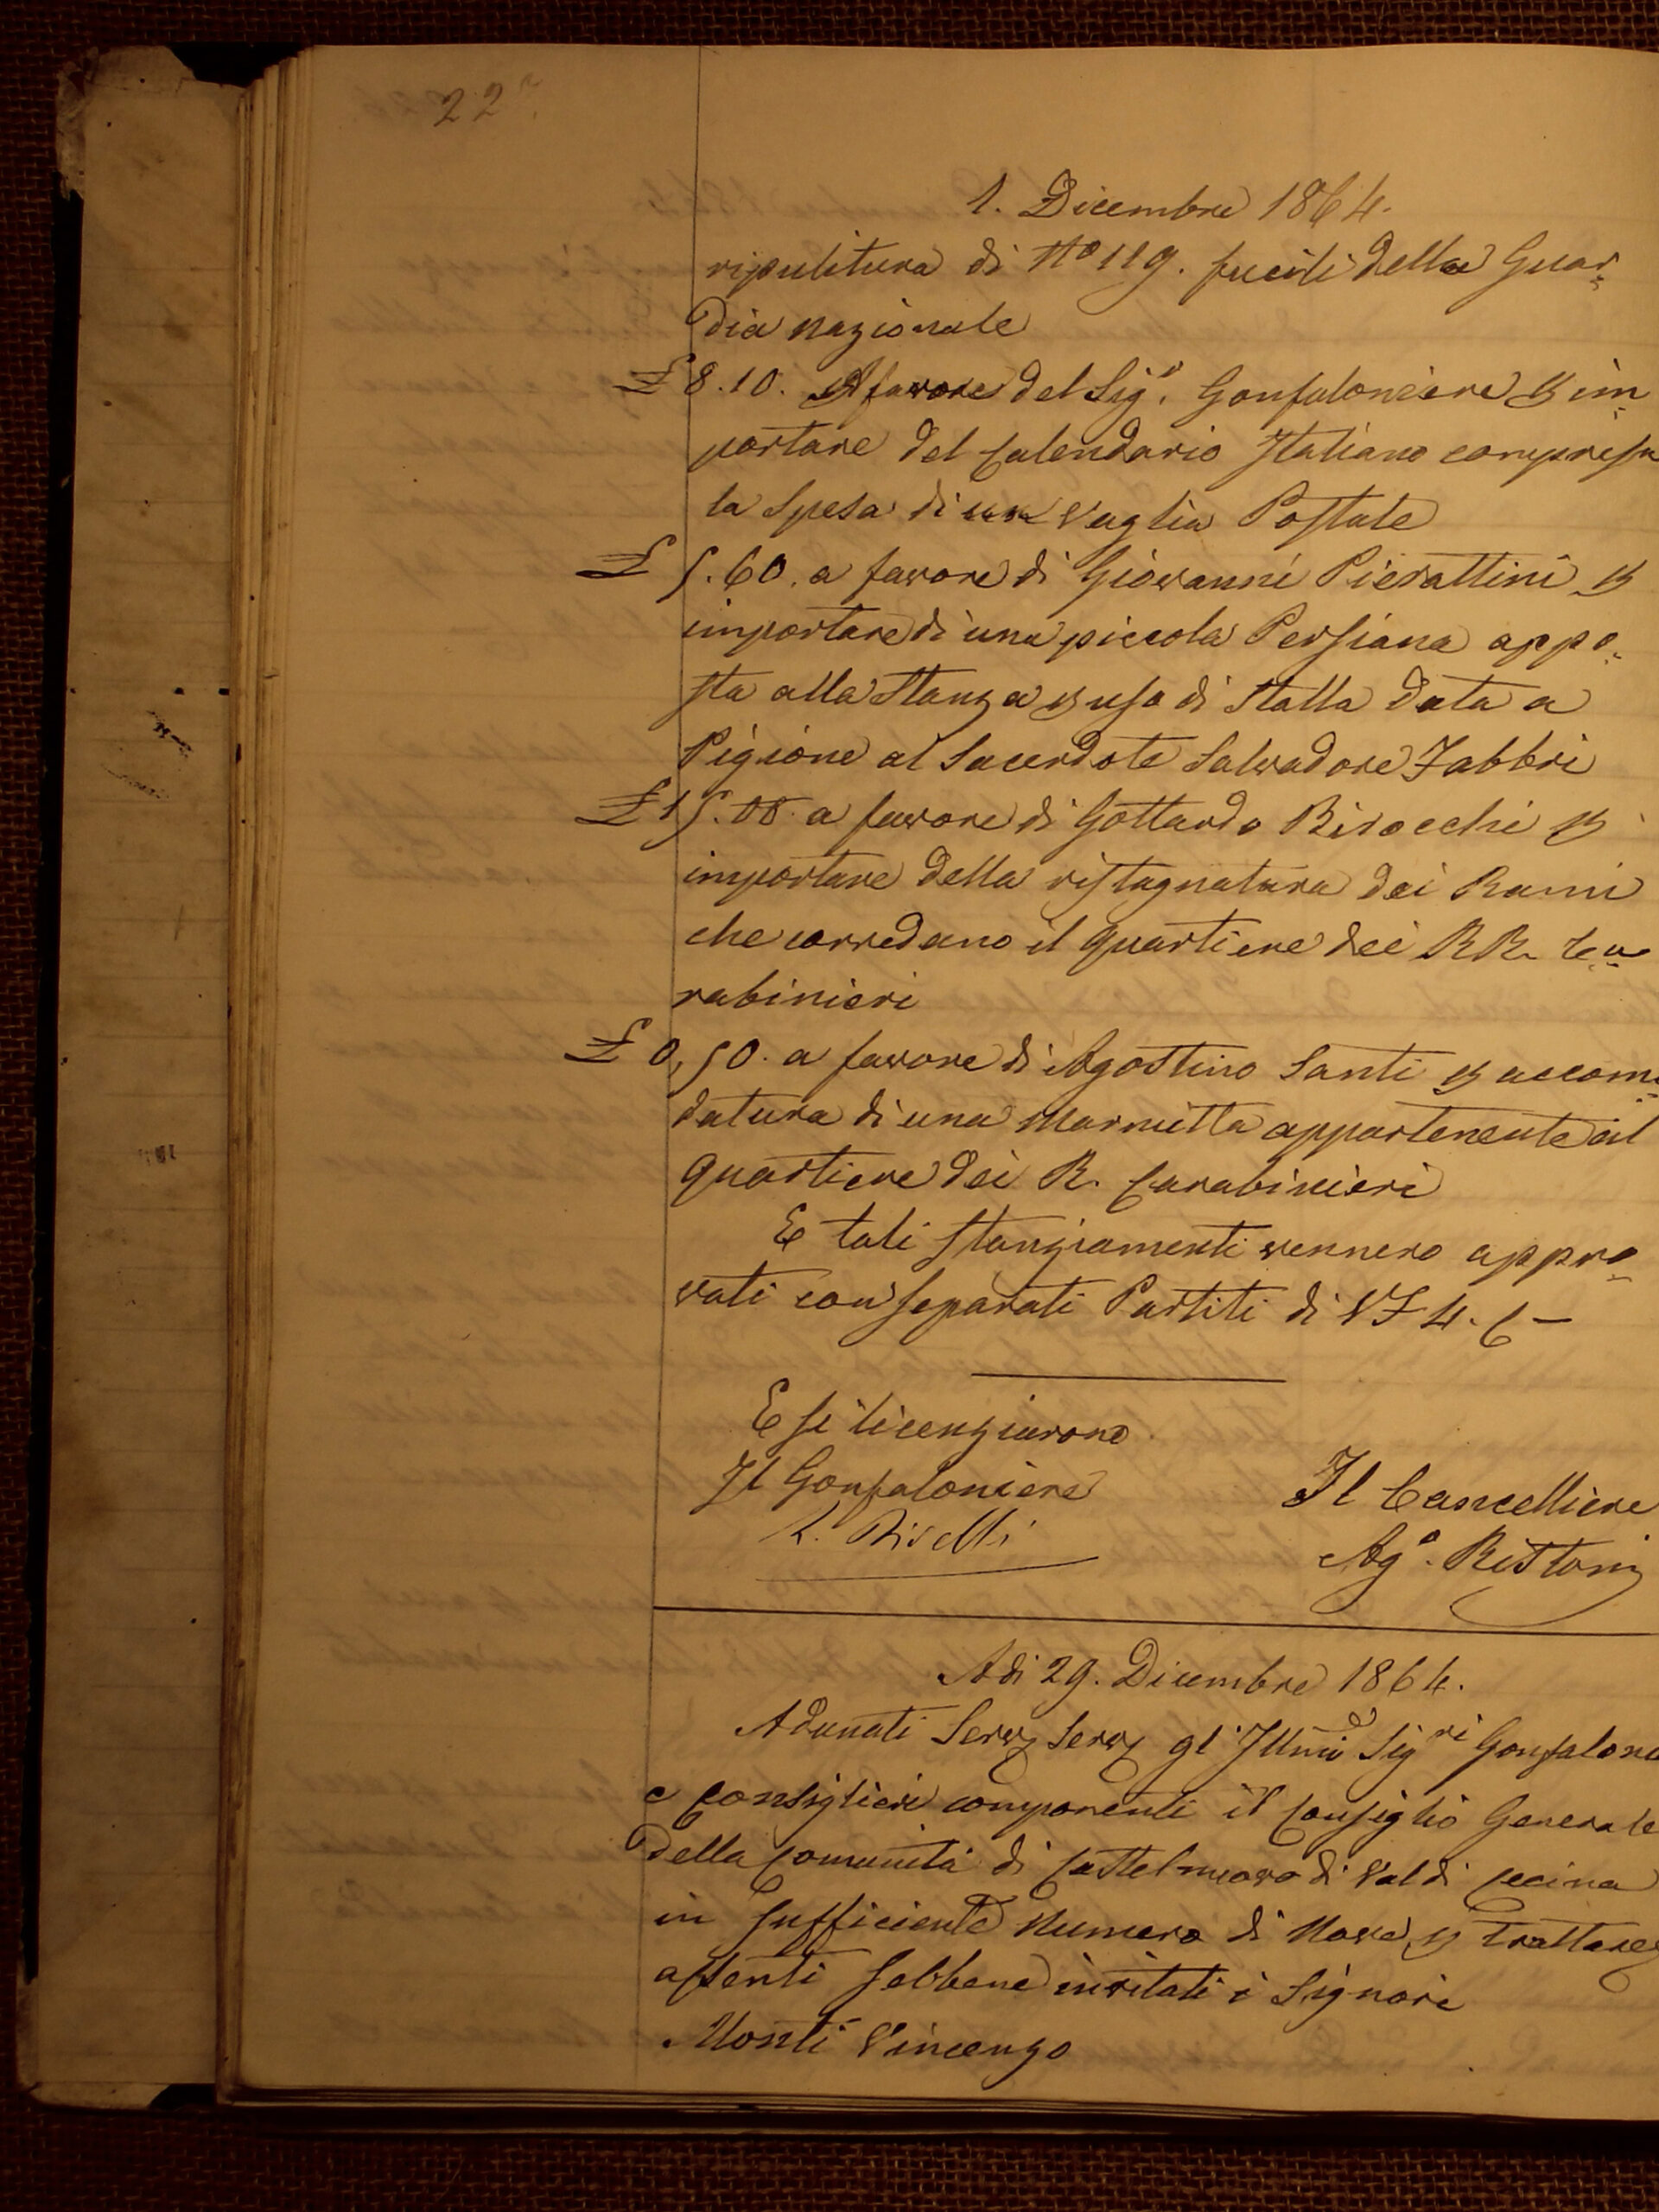 22
1. Dicembre 1864.
ripulitura di No 119. fucili della Guar=
dia nazionale
£ 8.10. A favore del Sigr. Gonfaloniere p im=
portare del Calendario Italiano compresa
la Spesa di un Vaglia Postale
£ 5.60. a favore di Giovanni Pierattini p
importare di una piccola Persiana appo=
sta alla Stanza p uso di Stalla data a
Pigione al Sacerdote Salvadore Fabbri
£ 15.08. a favore di Gottardo Birocchi p
importare della ristagnatura dei Rami
che corredano il quartiere dei RR. Ca=
rabinieri
£ 0,50. a favore di Agostino Santi p accomo=
datura di una Marmitta appartenente al
quartiere dei R. Carabinieri
E tali stanziamenti vennero appro=
vati con separati Partiti di VF 4. C —
E si licenziarono
Il Gonfaloniere
Il Cancelliere
Ago. Ristori
Adi 29. Dicembre 1864.
Adunati Serv Serv gl' Illmi Sigri Gonfalonie
e Consiglieri componenti il Consiglio Generale
della Comunità di Castelnuovo di Val di Cecina
in sufficiente Numero di Nove p trattare
assenti sebbene invitati i Signori
Monti Vincenzo